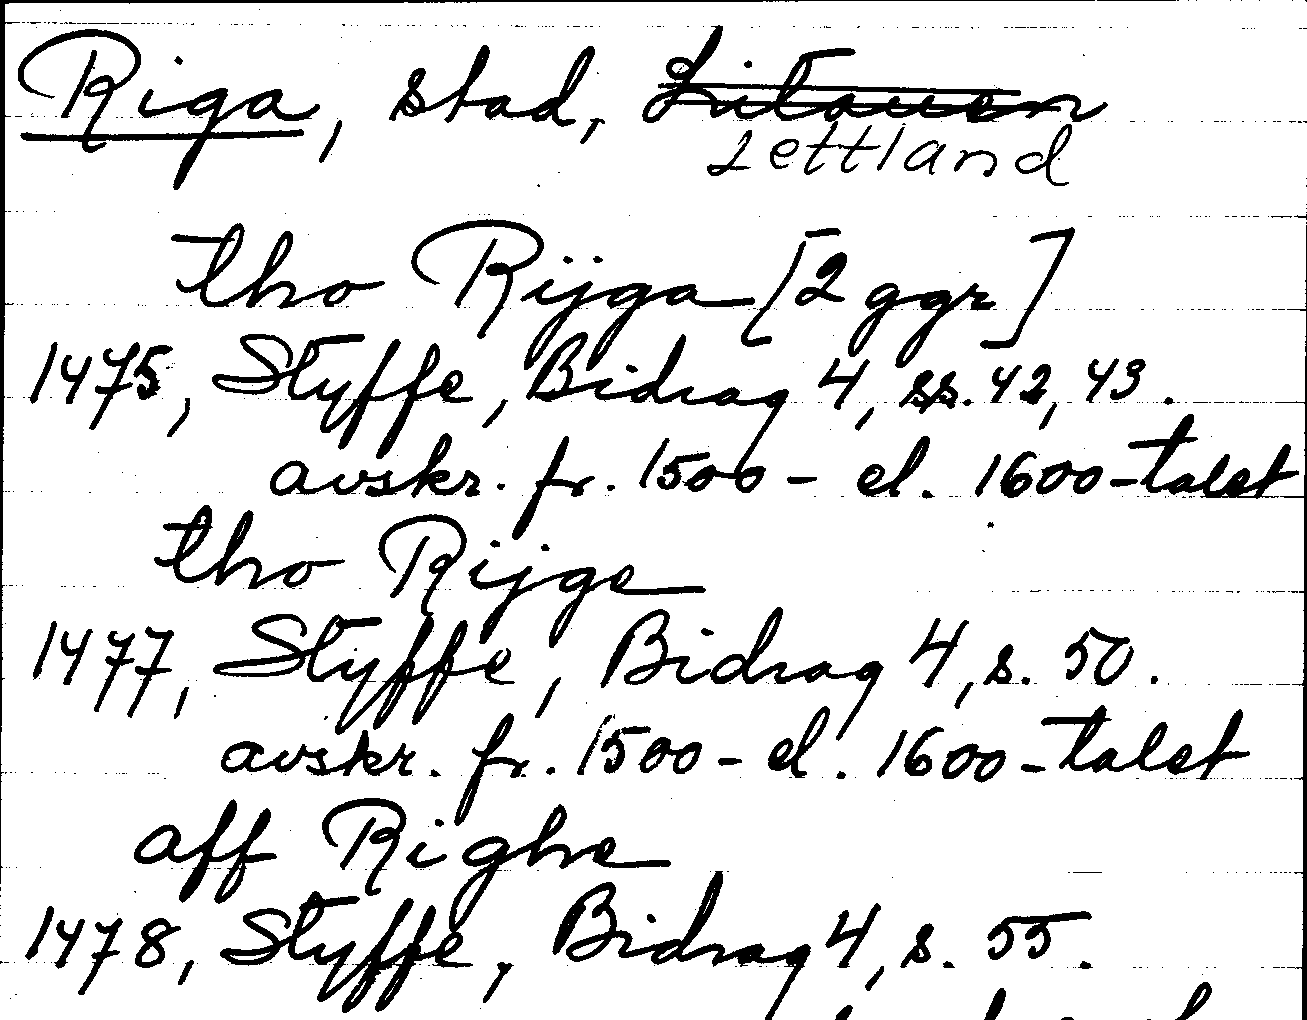 Riga, stad, Litauen
Lettland
tho Rijga [2 ggr]
1475, Styffe, Bidrag 4, ss. 42, 43.
avskr. fr. 1500- el. 1600-talet
tho Rijge
1477, Styffe, Bidrag 4, s. 50.
avskr. fr. 1500- el. 1600-talet
aff Righe
1478, Styffe, Bidrag 4, s. 55.